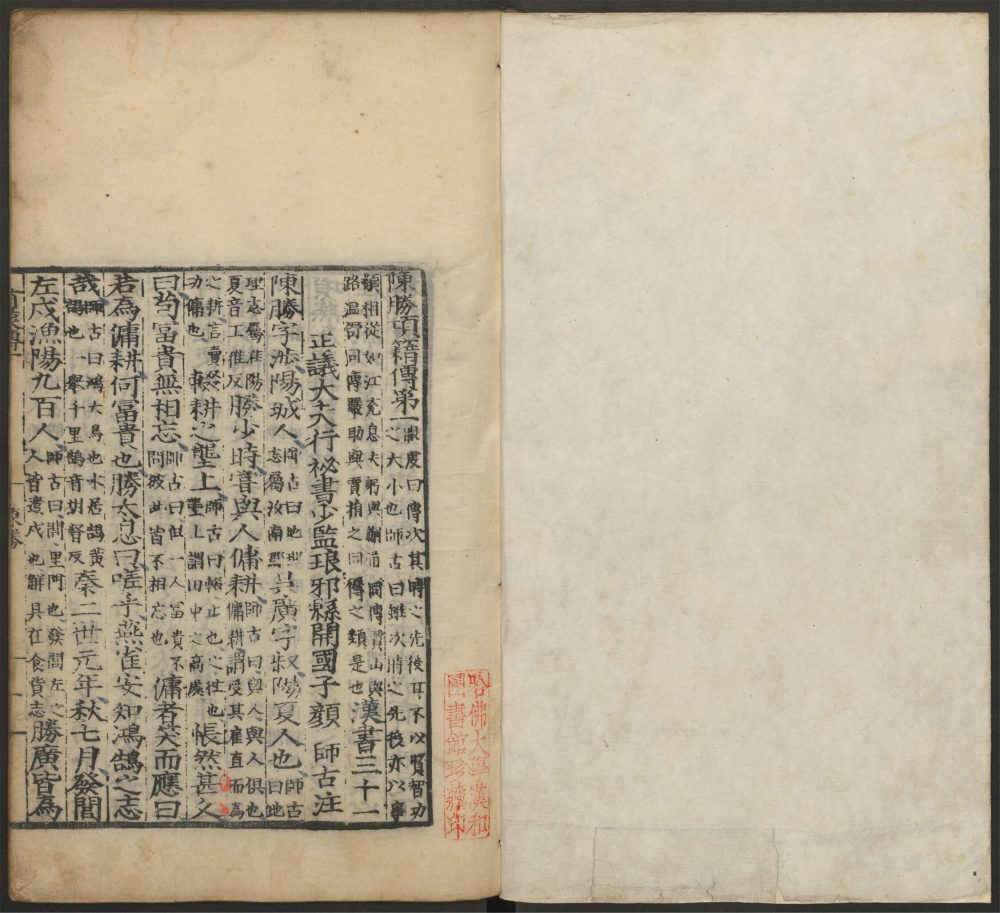 哈佛大學漢和
圖書館珍藏印
陳勝項籍傳第一服虔曰傳次其時之先後耳不以賢智功之大小也師古曰雖次時之先後亦以事
類相從如江充息夫躬與蒯通同傳賈山與路温舒同傳嚴助與賈捐之同傳之類是也漢書三十一
正議大夫行祕書少監琅邪縣開國子顏 師古注
陳勝字涉陽城人師古曰地理志屬汝南郡吳廣字叔陽夏人也師古曰地
理志屬淮陽夏音工雅反勝少時嘗與人傭耕師古曰與人與人俱也傭耕謂受其雇直而為
之耕言賣功傭也輟耕之壟上師古曰輟止也之往也壟上謂田中之高處悵然甚久
曰苟富貴無相忘師古曰但一人富貴不問彼此皆不相忘也傭者笑而應曰
若為傭耕何富貴也勝太息曰嗟乎燕雀安知鴻鵠之志
哉師古曰鴻大鳥也水居鵠黃鵠也一舉千里鵠音胡督反秦二世元年秋七月發閭
左戍漁陽九百人師古曰閭里門也發閭左之人皆遣戍也解具在食貨志勝廣皆為